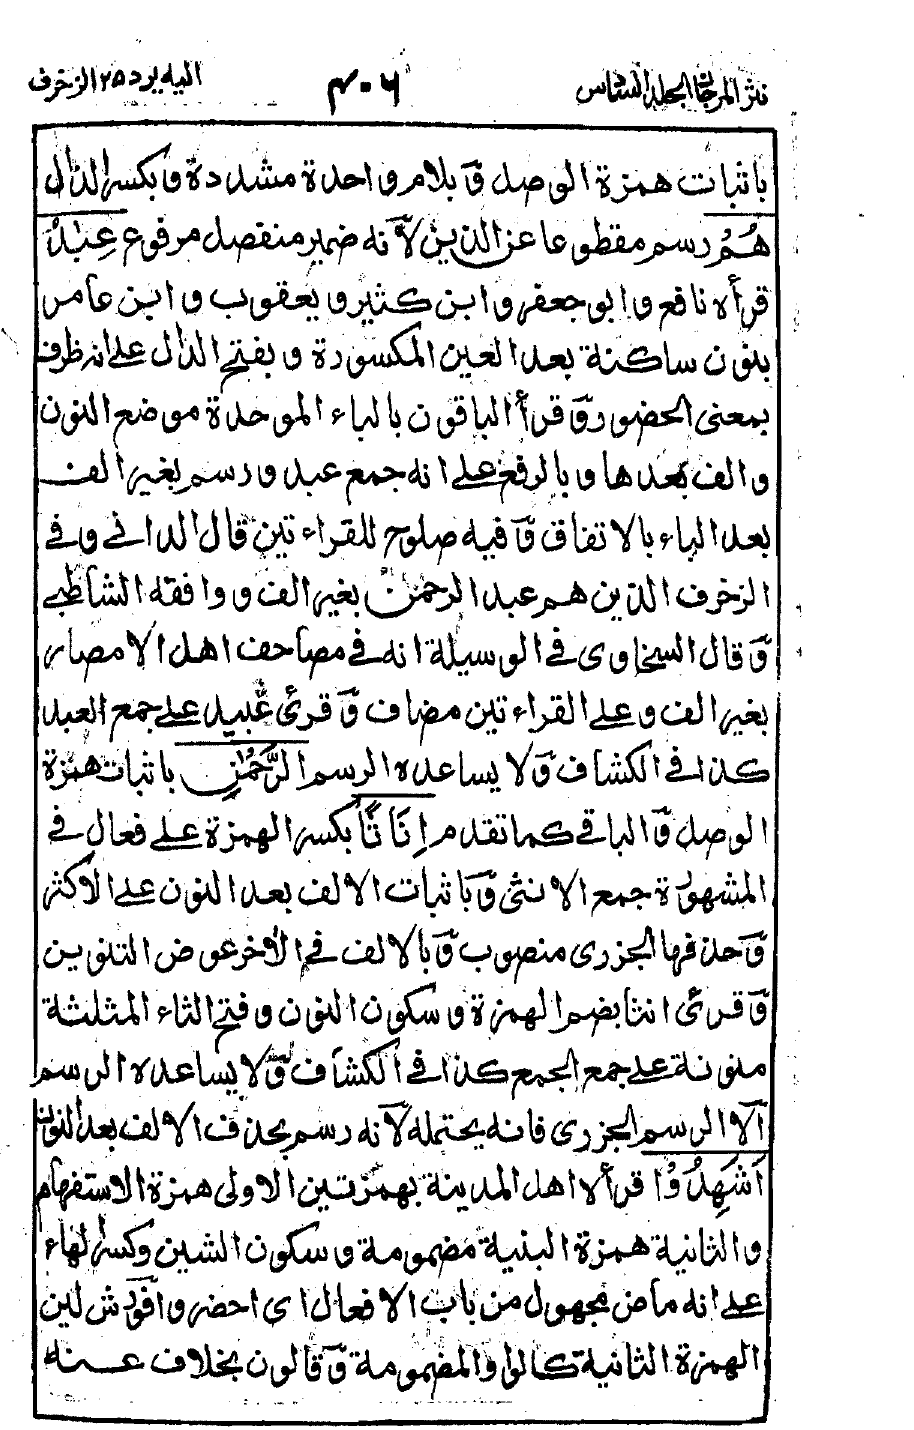 نثر المرجان الجلد السادس
٤٠٦
اليه يرد ٢٥ الزخرف
باثبات همزة الوصل وَ بلام واحدة مشددة و بكسر الذال
هُمْ رسم مقطوعا عن الذين لاَنه ضمير منفصل مرفوع عِبٰدُ
قرأه نافع و ابو جعفر و ابن كثير و يعقوب و ابن عامر
بنون ساكنة بعد العين المكسورة و بفتح الدال على انه ظرف
بمعنى الحضور وَ قرأ الباقون بالباء الموحدة موضع النون
و الف بعدها و بالرفع على انه جمع عبد و رسم بغير الف
بعد الباء بالاتفاق وَ فيه صلوح للقراءتين قال الداني و في
الزخرف الذين هم عبد الرحمٰن بغير الف و وافقه الشاطبي
وَ قال السخاوي في الوسيلة انه في مصاحف اهل الامصار
بغير الف و على القراءتين مضاف وَ قرئ عَبيد على جمع العبد
كذا في الكشاف وَ لا يساعده الرسم الرَّحْمٰنِ باثبات همزة
الوصل وَ الباقي كما تقدم اِنَاثًا بكسر الهمزة على فعال في
المشهورة جمع الانثى وَ باثبات الالف بعد النون على الاكثر
وَ حذفها الجزرى منصوب وَ بالالف في الاٰخر عوض التنوين
وَ قرئ انثا بضم الهمزة و سكون النون و فتح الثاء المثلثة
منونة على جمع الجمع كذا في الكشاف وَ لا يساعده الرسم
اَلا الرسم الجزرى فانه يحتمله لاَنه رسم بحذف الالف بعد النون
اَشَهِدُوْا قرأه اهل المدينة بهمزتين الاولى همزة الاستفهام
و الثانية همزة البنية مضمومة و سكون الشين و كسر الهاء
على انه ماض مجهول من باب الافعال اى احضروا وَ ورش لين
الهمزة الثانية كالواو المضمومة وَ قالون بخلاف عنه